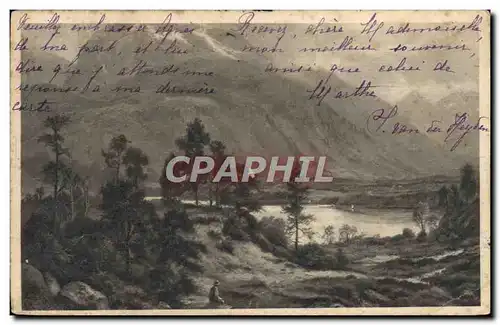 Veuillez embrasser Agnès
de ma part, et lui
dire que j'attends une
réponse à ma dernière
carte
Recevez, chère Mademoiselle
mon meilleur souvenir,
ainsi que celui de
Marthe
H. van der Heyden
CPAPHIL